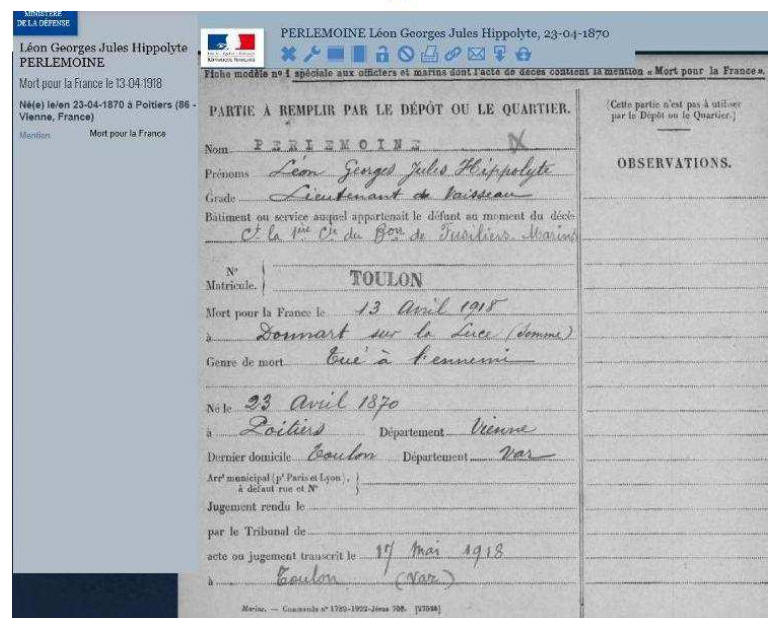 MINISTÈRE
DE LA DÉFENSE
Léon Georges Jules Hippolyte
PERLEMOINE
Mort pour la France le 13-04-1918
Né(e) le/en 23-04-1870 à Poitiers (86 -
Vienne, France)
Mention Mort pour la France
PERLEMOINE Léon Georges Jules Hippolyte, 23-04-1870
Fiche modèle nº 1 spéciale aux officiers et marins dont l'acte de décès contient la mention « Mort pour la France ».
PARTIE À REMPLIR PAR LE DÉPÔT OU LE QUARTIER.
(Cette partie n'est pas à utiliser
par le Dépôt ou le Quartier.)
OBSERVATIONS.
Nom PERLEMOINE
Prénoms Léon Georges Jules Hippolyte
Grade Lieutenant de Vaisseau
Bâtiment ou service auquel appartenait le défunt au moment du décès
Ct la 1ère Cie du Bon de Fusiliers Marins
Nº
Matricule. TOULON
Mort pour la France le 13 Avril 1918
à Donnart sur la Luce (Somme)
Genre de mort Tué à l'ennemi
Né le 23 Avril 1870
à Poitiers Département Vienne
Dernier domicile Toulon Département Var
Arrt municipal (pr Paris et Lyon),
à défaut rue et Nº
Jugement rendu le
par le Tribunal de
acte ou jugement transcrit le 17 Mai 1918
à Toulon (Var)
Marine. — Commande nº 1789-1922-2ème 708. [27598]